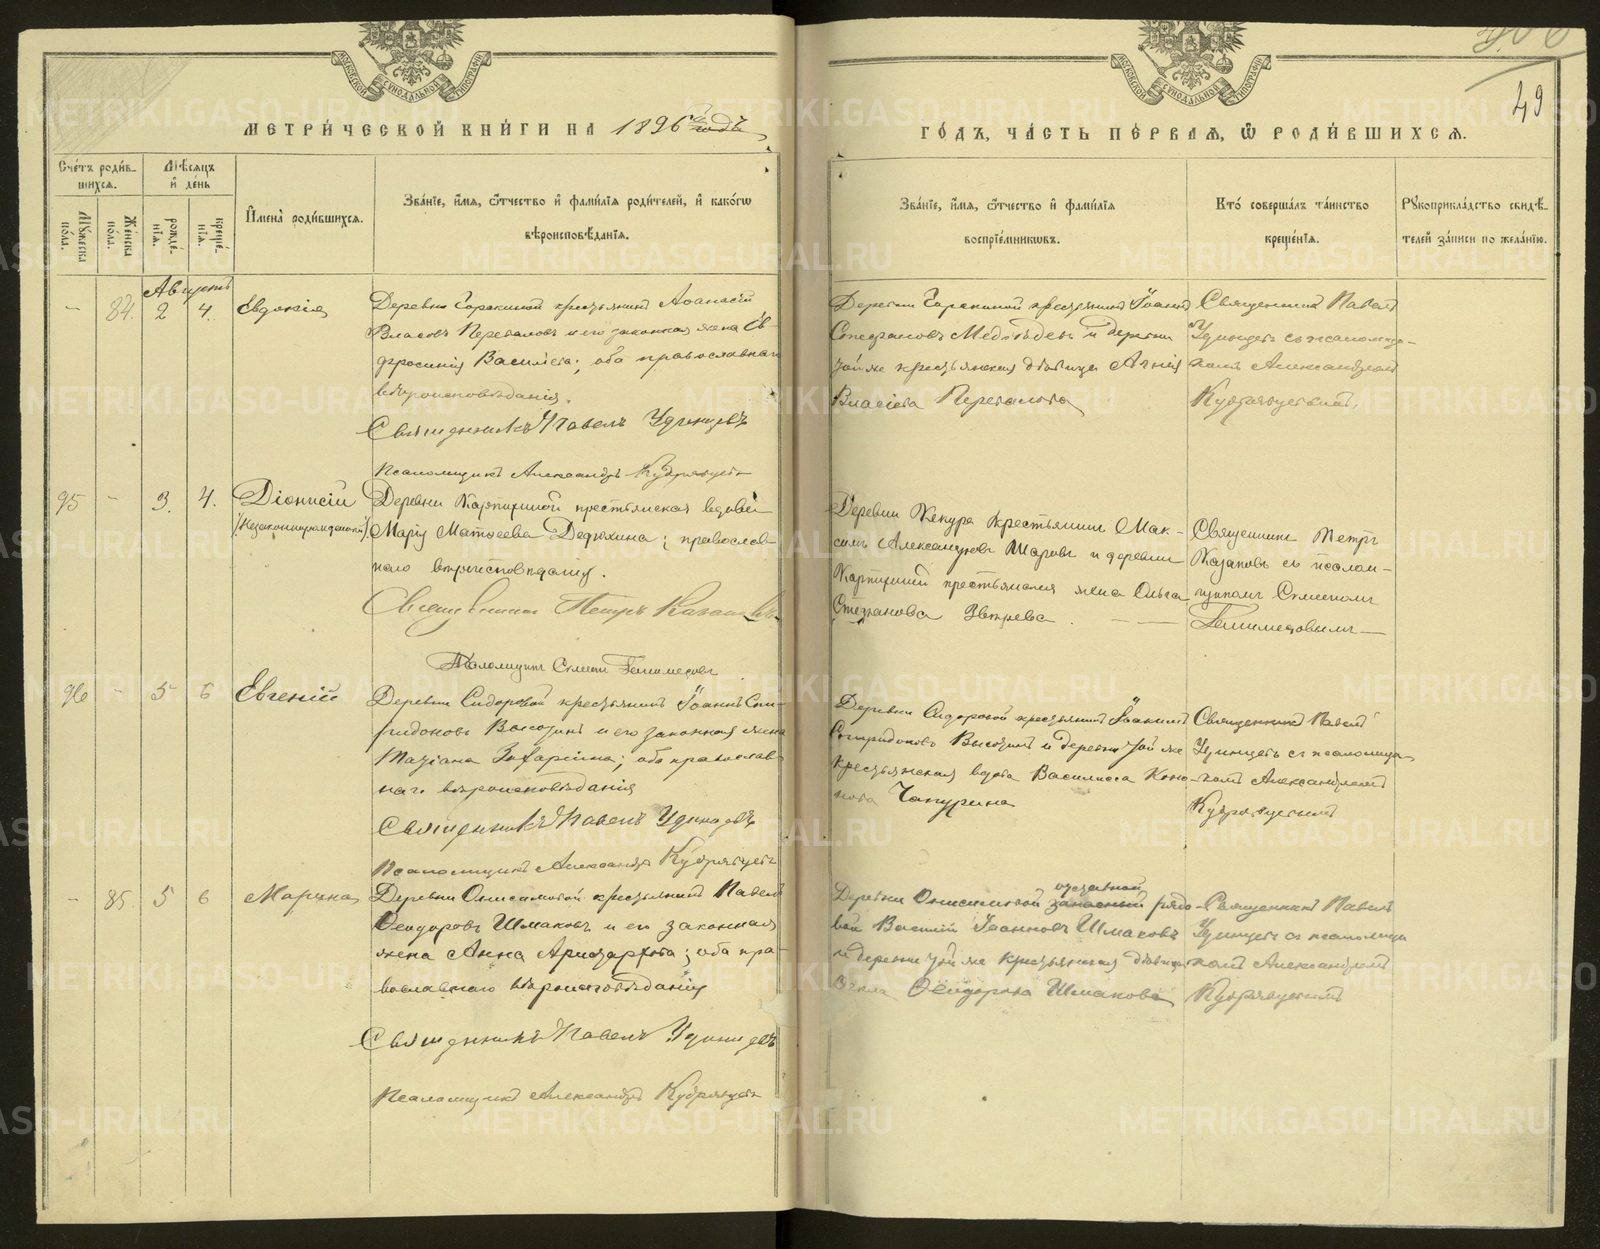 МОСКОВСКОЙ СѴНОДАЛЬНОЙ ТИПОГРАФІИ
МОСКОВСКОЙ СѴНОДАЛЬНОЙ ТИПОГРАФІИ
49
МЕТРИ́ЧЕСКОЙ КНИ́ГИ НА 1896 годъ
ГО́ДЪ, ЧА́СТЬ ПЕ́РВАЯ, Ѡ РОДИ́ВШИХСЯ.
Сче́тъ роди́в-
шихся.
Мѣ́сяцъ
и̑ де́нь
Мꙋ́жеска
по́лꙋ.
Же́нска
по́лꙋ.
рожде́-
нїѧ.
креще́-
нїѧ.
И҆мена̀ роди́вшихся.
Зва́нїе, и҆́мя, ѻ҆́тчество и҆ фами́лїя роди́телей, и҆ како́гѡ
вѣроисповѣ́данїя.
Зва́нїе, и҆́мя, ѻ҆́тчество и҆ фами́лїя
воспрїе́мникѡвъ.
Кто̀ соверша́лъ та́инство
креще́нїя.
Рꙋкоприкла́дство свидѣ́-
телей за́писи по жела́нїю.
Августъ
- 84. 2 4. Евдокія
Деревни Сорокиной крестьянинъ Аѳанасій
Власовъ Переваловъ и его законная жена Ев-
фросинія Васильева; оба православнаго
вѣроисповѣданія.
Священникъ Павелъ Удинцевъ
Псаломщикъ Александръ Кудрявцевъ
Деревни Сорокиной крестьянинъ Іоаннъ
Стефановъ Медвѣдевъ и деревни
той же крестьянская дѣвица Агнія
Власіева Перевалова
Священникъ Павелъ
Удинцевъ съ псаломщи-
комъ Александромъ
Кудрявцевымъ.
95 - 3. 4. Діонисій
(Незаконнорожденный)
Деревни крестьянская вдова
Марія Матѳеева Дедюхина; православ-
наго вѣроисповѣданія.
Священникъ Петръ Казаковъ
Псаломщикъ
Деревни крестьянинъ Мак-
симъ Александровъ Шаровъ и деревни
крестьянская жена Ольга
Стефанова
Священникъ Петръ
Казаковъ съ псалом-
щикомъ
96 - 5 6 Евгеній
Деревни Сидоровой крестьянинъ Іоаннъ Спи-
ридоновъ и его законная жена
Татіана Захаріина; оба православ-
наго вѣроисповѣданія
Священникъ Павелъ Удинцевъ
Псаломщикъ Александръ Кудрявцевъ
Деревни Сидоровой крестьянинъ
Спиридоновъ и деревни той же
крестьянская вдова Василисса Коно-
нова Чапурина
Священникъ Павелъ
Удинцевъ съ псаломщи-
комъ Александромъ
Кудрявцевымъ
- 85. 5 6 Марина
Деревни Онисимовой крестьянинъ Павелъ
Ѳеодоровъ Шмаковъ и его законная
жена Анна Аристархова; оба пра-
вославнаго вѣроисповѣданія
Священникъ Павелъ Удинцевъ
Псаломщикъ Александръ Кудрявцевъ
отставной
Деревни Онисимовой запасный рядо-
вой Василій Іоанновъ Шмаковъ
и деревни той же крестьянская дѣвица
Ѳеодорова Шмакова
Священникъ Павелъ
Удинцевъ съ псаломщи-
комъ Александромъ
Кудрявцевымъ
METRIKI.GASO-URAL.RU